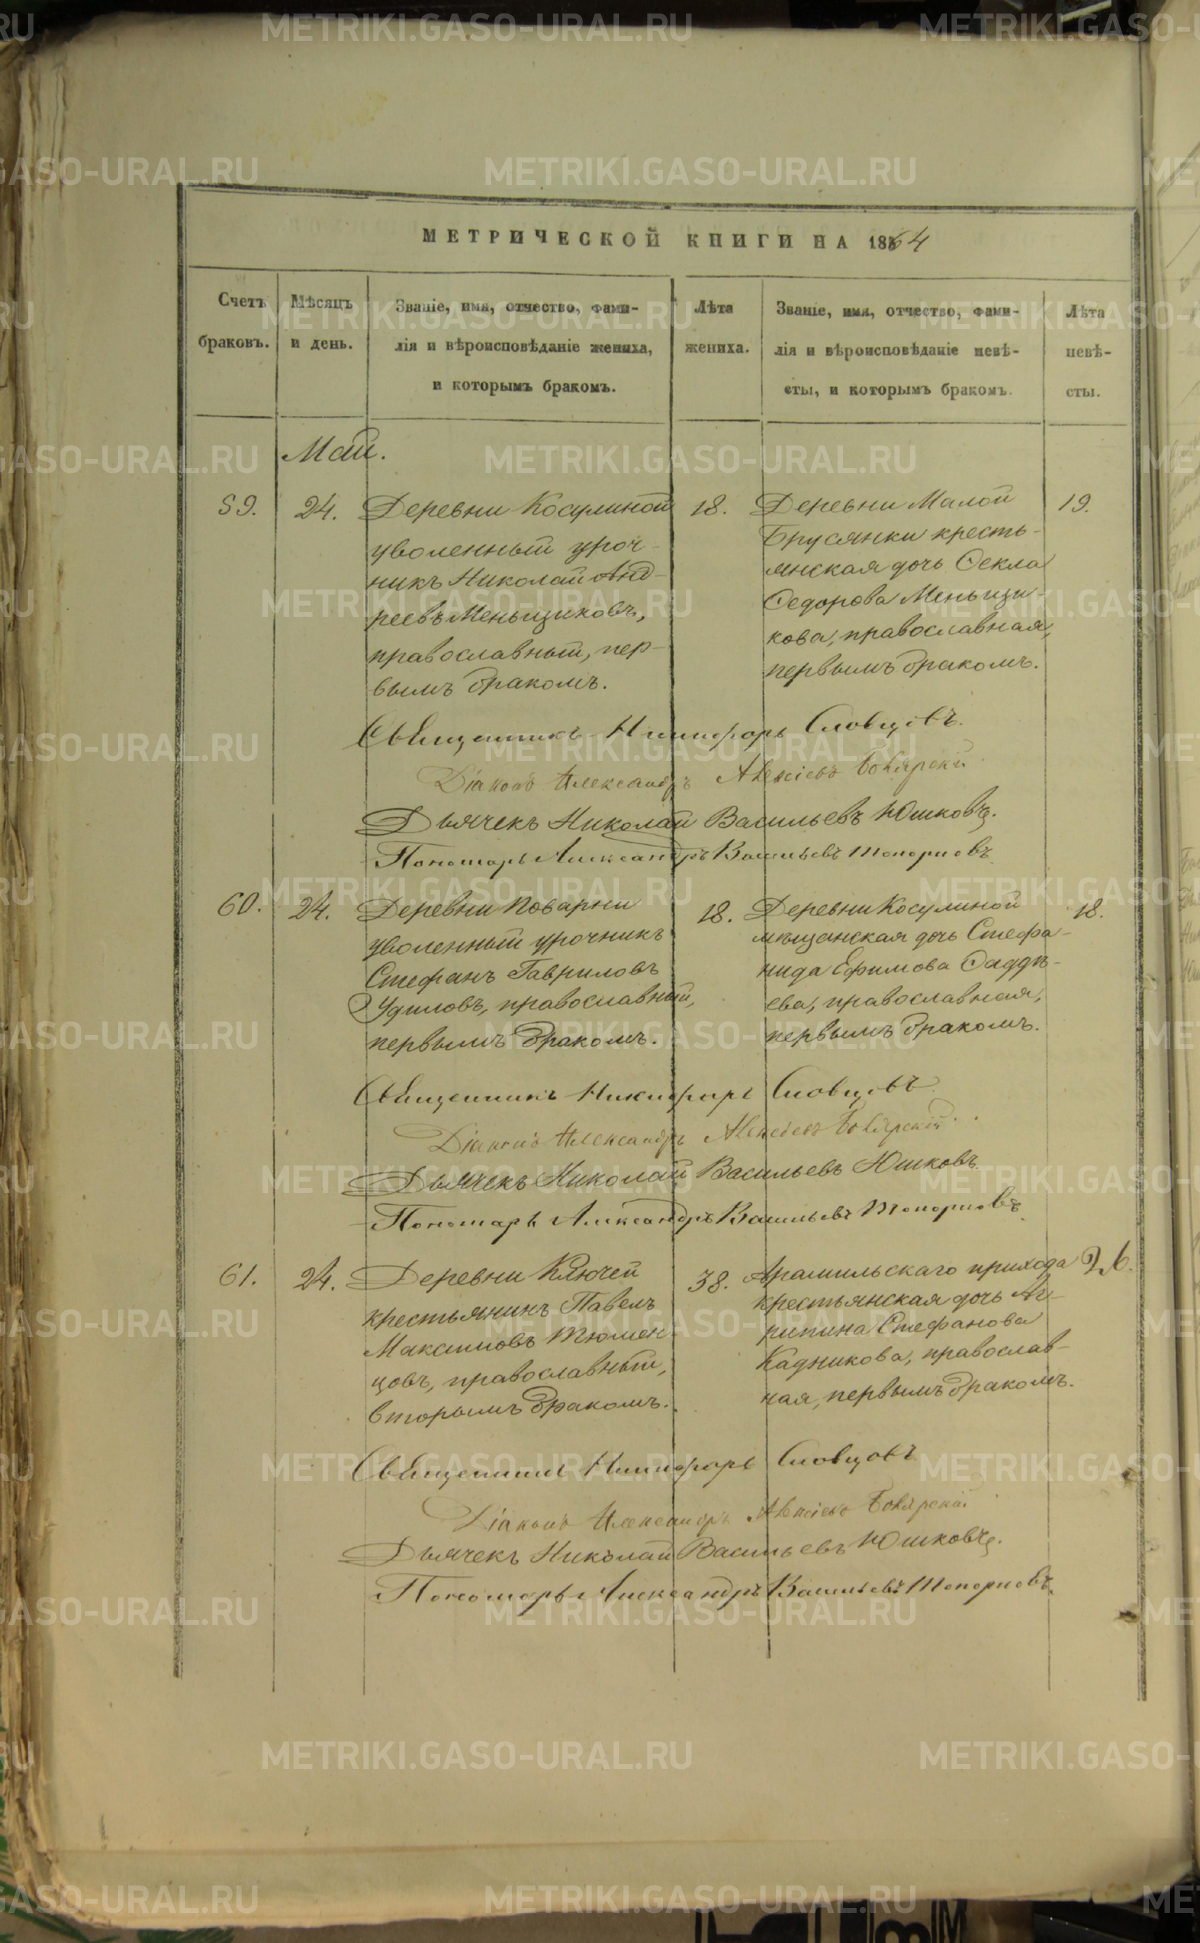 МЕТРИЧЕСКОЙ КНИГИ НА 1864
Счетъ браковъ.
Мѣсяцъ и день.
Званіе, имя, отчество, фами-
лія и вѣроисповѣданіе жениха,
и которымъ бракомъ.
Лѣта жениха.
Званіе, имя, отчество, фами-
лія и вѣроисповѣданіе невѣ-
сты, и которымъ бракомъ.
Лѣта невѣ-
сты.
Май.
59.
24.
Деревни Косулиной
уволенный уроч-
никъ Николай Анд-
реевъ Меньщиковъ,
православный, пер-
вымъ бракомъ.
18.
Деревни Малой
Брусянки кресть-
янская дочь Ѳекла
Ѳедорова Меньщи-
кова, православная,
первымъ бракомъ.
19.
Священникъ Никифоръ Словцовъ.
Діаконъ Александръ Алексіевъ Боярскій
Дьячекъ Николай Васильевъ Юшковъ.
Пономарь Александръ Васильевъ Топорковъ
60.
24.
Деревни Поварни
уволенный урочникъ
Стефанъ Гавриловъ
Удиловъ, православный,
первымъ бракомъ.
18.
Деревни Косулиной
мѣщанская дочь Стефа-
нида Ефимова Ѳаддѣ-
ева, православная,
первымъ бракомъ.
18.
Священникъ Никифоръ Словцовъ.
Діаконъ Александръ Алексіевъ Боярскій
Дьячекъ Николай Васильевъ Юшковъ
Пономарь Александръ Васильевъ Топорковъ
61.
24.
Деревни Ключей
крестьянинъ Павелъ
Максимовъ Тюмен-
цовъ, православный,
вторымъ бракомъ.
38.
Арамильскаго прихода
крестьянская дочь Аг-
рипина Стефанова
Кадникова, православ-
ная, первымъ бракомъ.
26.
Священникъ Никифоръ Словцовъ
Діаконъ Александръ Алексіевъ Боярскій
Дьячекъ Николай Васильевъ Юшковъ.
Пономарь Александръ Васильевъ Топорковъ
METRIKI.GASO-URAL.RU